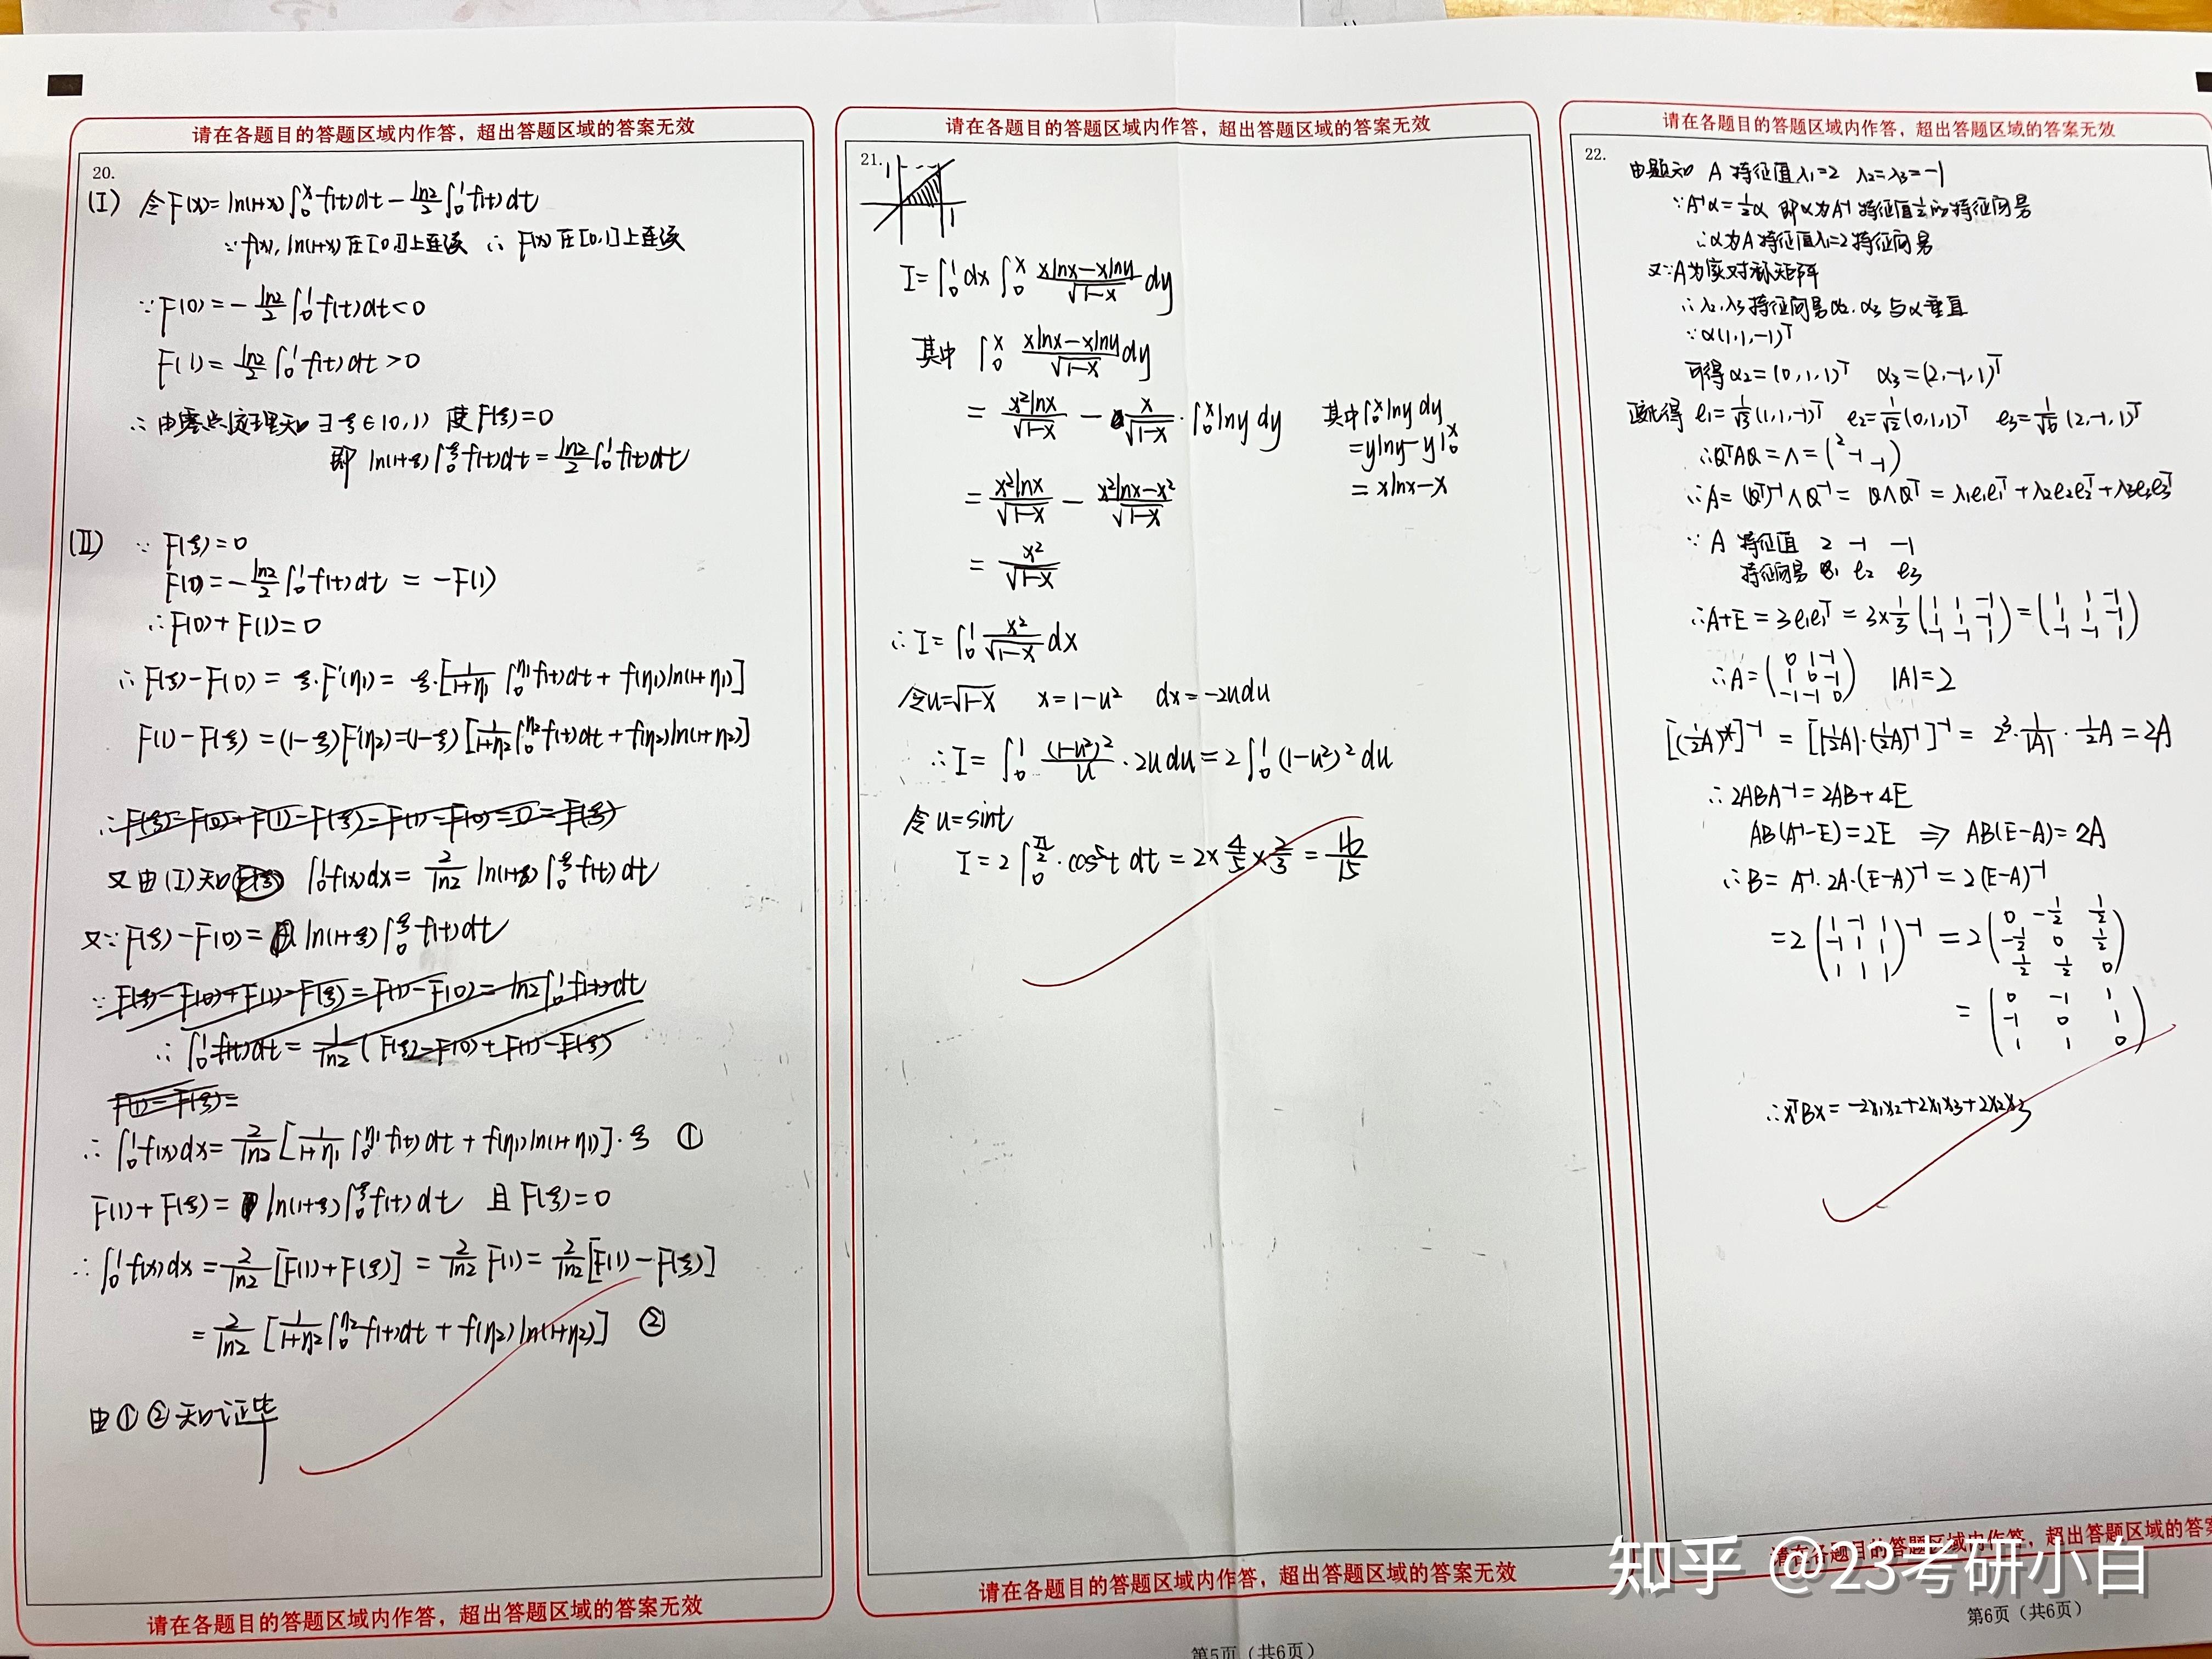 请在各题目的答题区域内作答，超出答题区域的答案无效
20.
(I) 令F(x)=ln(1+x)∫₀ˣf(t)dt-ln2/2∫₀¹f(t)dt
∵f(x), ln(1+x)在[0,1]上连续 ∴F(x)在[0,1]上连续
∵F(0)=-ln2/2∫₀¹f(t)dt<0
F(1)=ln2/2∫₀¹f(t)dt>0
∴由零点定理知∃ξ∈(0,1) 使F(ξ)=0
即 ln(1+ξ)∫₀^ξ f(t)dt=ln2/2∫₀¹f(t)dt
(II) ∵F(ξ)=0
F(0)=-ln2/2∫₀¹f(t)dt=-F(1)
∴F(0)+F(1)=0
∴F(ξ)-F(0)=ξ·F'(η₁)=ξ·[1/(1+η₁)∫₀^η₁ f(t)dt+f(η₁)ln(1+η₁)]
F(1)-F(ξ)=(1-ξ)F'(η₂)=(1-ξ)[1/(1+η₂)∫₀^η₂ f(t)dt+f(η₂)ln(1+η₂)]
∴F(ξ)-F(0)+F(1)-F(ξ)=F(1)-F(0)=0=F(ξ)
又由(I)知 ∫₀¹f(x)dx=2/ln2 ln(1+ξ)∫₀^ξ f(t)dt
又∵F(ξ)-F(0)=ln(1+ξ)∫₀^ξ f(t)dt
∵F(ξ)-F(0)+F(1)-F(ξ)=F(1)-F(0)=ln2∫₀¹f(t)dt
∴∫₀¹f(t)dt=1/ln2(F(ξ)-F(0)+F(1)-F(ξ))
F(1)-F(ξ)=
∴∫₀¹f(x)dx=2/ln2[1/(1+η₁)∫₀^η₁ f(t)dt+f(η₁)ln(1+η₁)]·ξ ①
F(1)+F(ξ)=ln(1+ξ)∫₀^ξ f(t)dt 且F(ξ)=0
∴∫₀¹f(x)dx=2/ln2[F(1)+F(ξ)]=2/ln2 F(1)=2/ln2[F(1)-F(ξ)]
=2/ln2[1/(1+η₂)∫₀^η₂ f(t)dt+f(η₂)ln(1+η₂)] ②
由①②知证毕
请在各题目的答题区域内作答，超出答题区域的答案无效
请在各题目的答题区域内作答，超出答题区域的答案无效
21.
1
1
I=∫₀¹dx∫₀ˣ (xlnx-xlny)/√(1-x) dy
其中 ∫₀ˣ (xlnx-xlny)/√(1-x) dy
=x²lnx/√(1-x) - x/√(1-x)·∫₀ˣlny dy
其中∫₀ˣlny dy
=ylny-y|₀ˣ
=xlnx-x
=x²lnx/√(1-x) - (x²lnx-x²)/√(1-x)
=x²/√(1-x)
∴I=∫₀¹ x²/√(1-x) dx
令u=√(1-x) x=1-u² dx=-2udu
∴I=∫₀¹ (1-u²)²/u·2udu=2∫₀¹(1-u²)²du
令u=sint
I=2∫₀^(π/2)·cos⁵t dt=2×4/5×2/3=16/15
请在各题目的答题区域内作答，超出答题区域的答案无效
第5页（共6页）
请在各题目的答题区域内作答，超出答题区域的答案无效
22.
由题知 A 特征值λ₁=2 λ₂=λ₃=-1
∵A⁻¹α=1/2α 即α为A⁻¹特征值1/2的特征向量
∴α为A特征值λ₁=2特征向量
又∵A为实对称矩阵
∴λ₂,λ₃特征向量α₂,α₃与α垂直
∵α(1,1,-1)ᵀ
可得α₂=(0,1,1)ᵀ α₃=(2,-1,1)ᵀ
正交化得 e₁=1/√3(1,1,-1)ᵀ e₂=1/√2(0,1,1)ᵀ e₃=1/√6(2,-1,1)ᵀ
∴QᵀAQ=Λ=(2 -1 -1)
∴A=(Qᵀ)⁻¹ΛQ⁻¹=QΛQᵀ=λ₁e₁e₁ᵀ+λ₂e₂e₂ᵀ+λ₃e₃e₃ᵀ
∵A 特征值 2 -1 -1
特征向量 e₁ e₂ e₃
∴A+E=3e₁e₁ᵀ=3×1/3(1 1 -1; 1 1 -1; -1 -1 1)=(1 1 -1; 1 1 -1; -1 -1 1)
∴A=(0 1 -1; 1 0 -1; -1 -1 0) |A|=2
[(1/2A)*]⁻¹=[|1/2A|·(1/2A)⁻¹]⁻¹=2³·1/|A|·1/2A=2A
∴2ABA⁻¹=2AB+4E
AB(A⁻¹-E)=2E ⇒ AB(E-A)=2A
∴B=A⁻¹·2A·(E-A)⁻¹=2(E-A)⁻¹
=2(1 -1 1; -1 1 1; 1 1 1)⁻¹=2(0 -1/2 1/2; -1/2 0 1/2; 1/2 1/2 0)
=(0 -1 1; -1 0 1; 1 1 0)
∴xᵀBx=-2x₁x₂+2x₁x₃+2x₂x₃
请在各题目的答题区域内作答，超出答题区域的答案
知乎 @23考研小白
第6页（共6页）